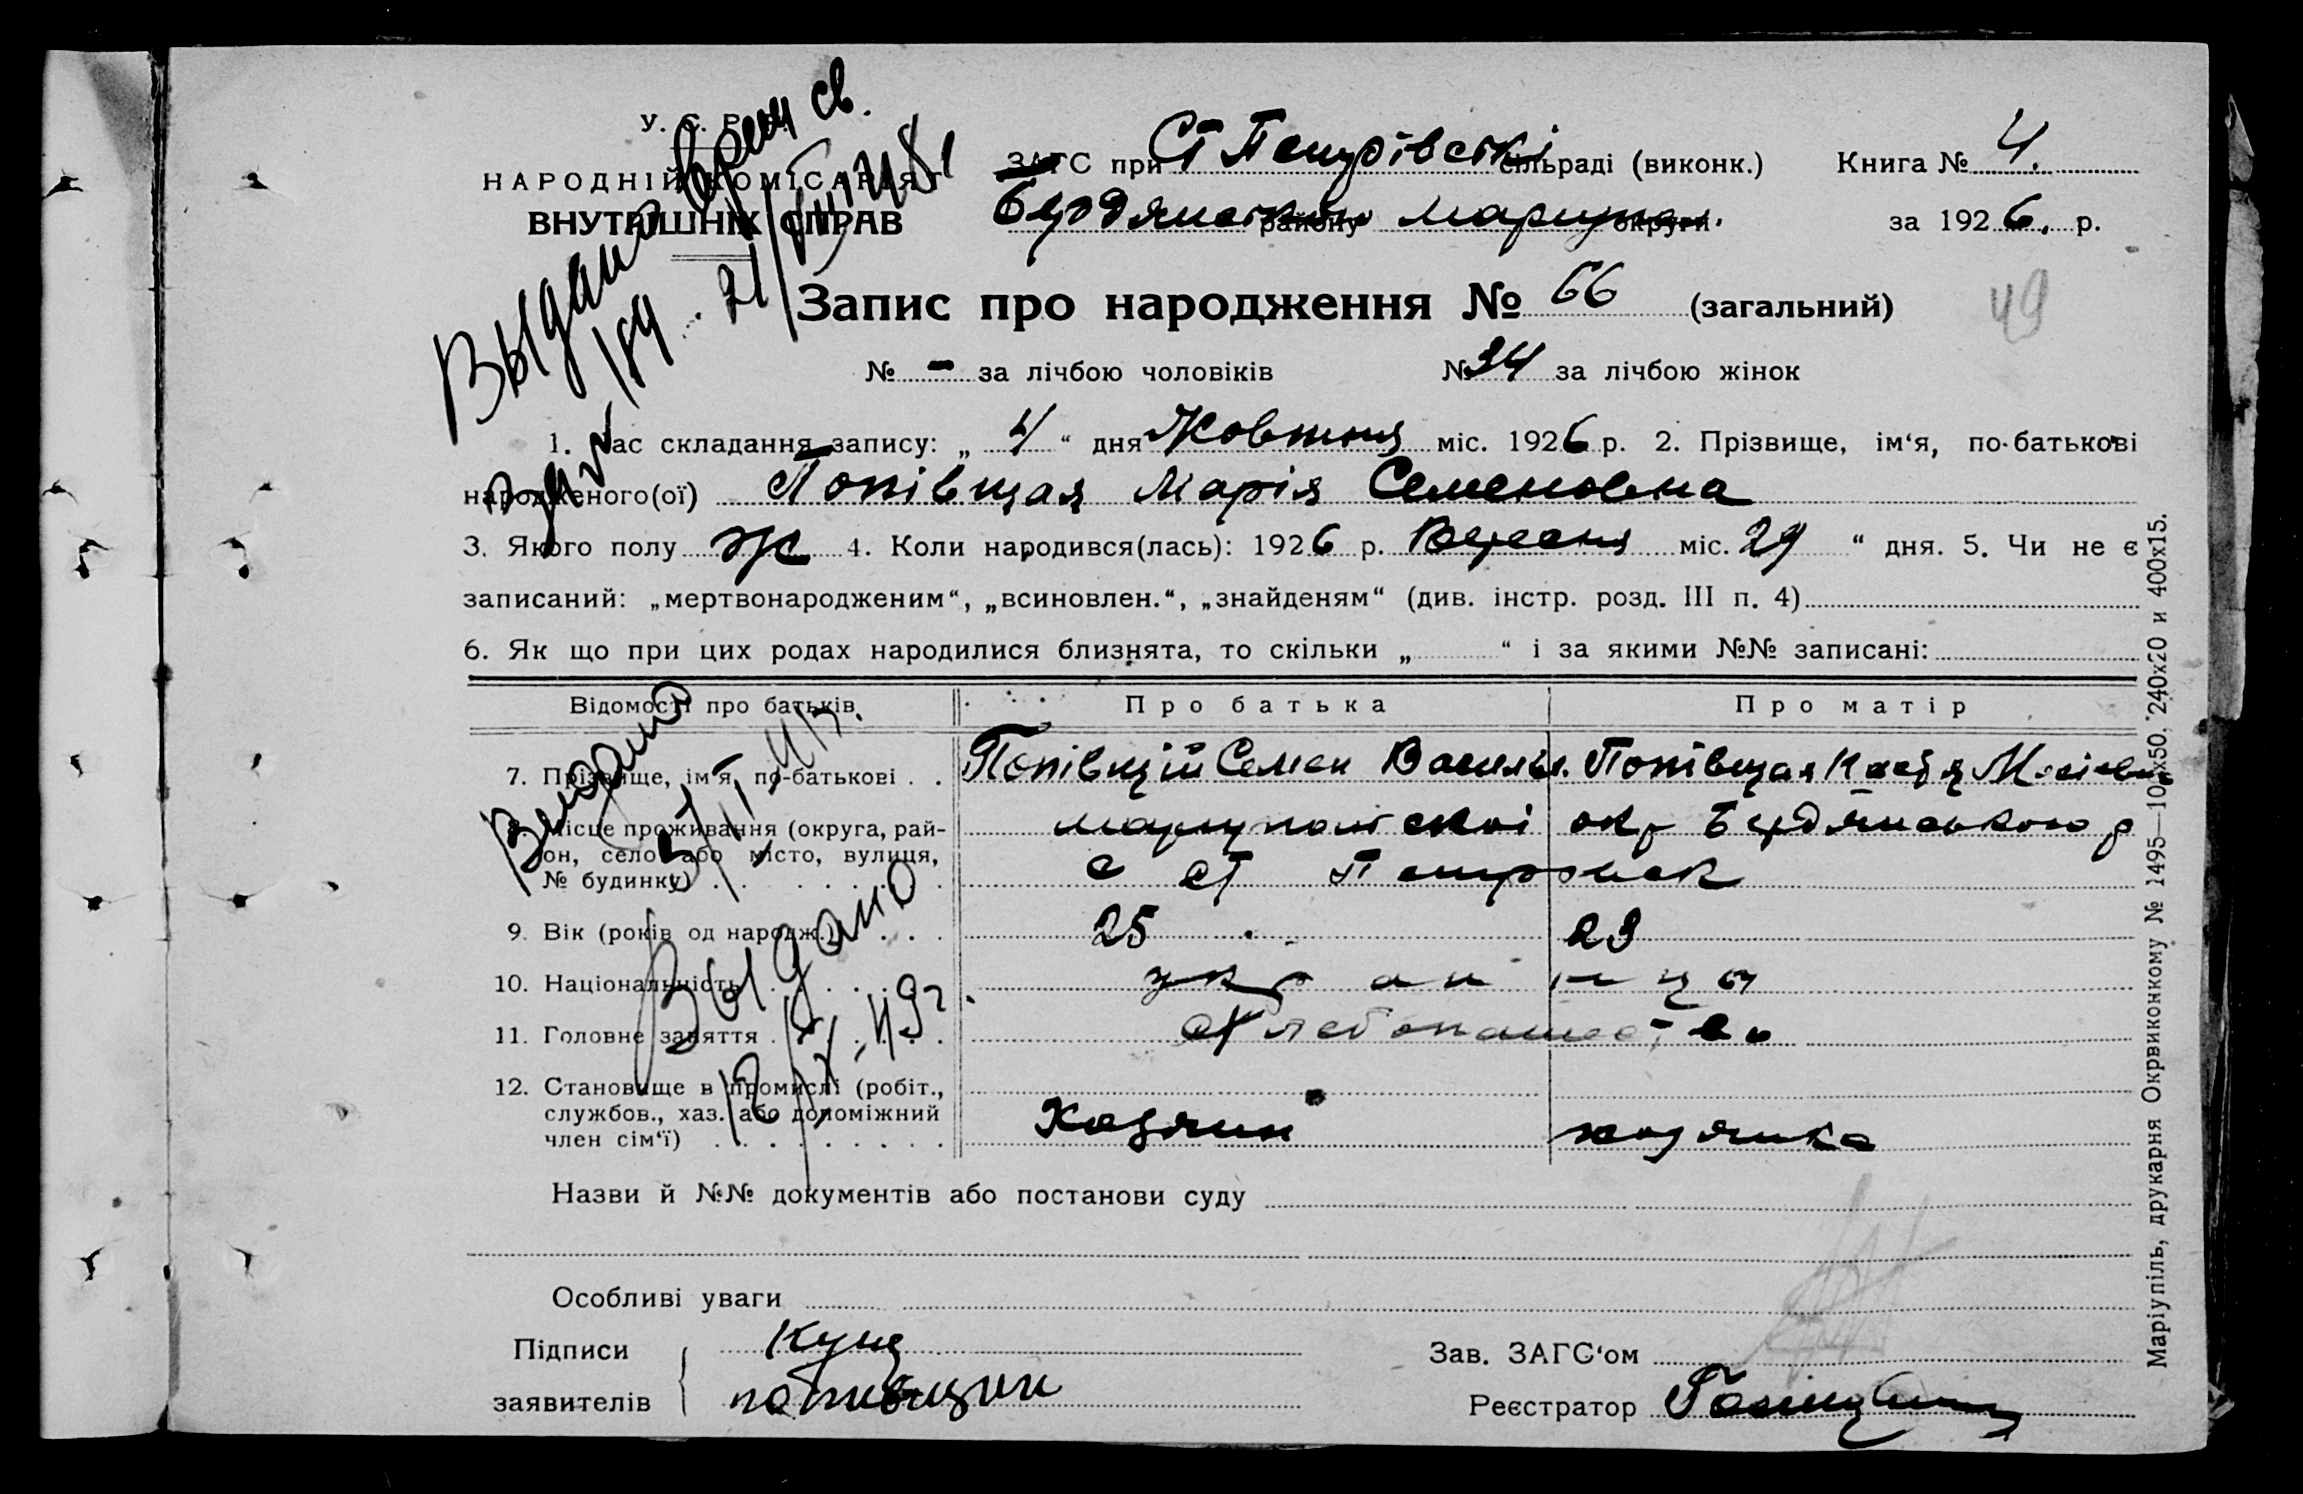 У. С. Р. Р.
НАРОДНІЙ КОМІСАРІЯТ
ВНУТРІШНІХ СПРАВ
ЗАГС при Ст Петрівські сільраді (виконк.) Книга № 4.
Бердянського району Мариупол. округи за 1926. р.
Запис про народження № 66 (загальний)
49
№ - за лічбою чоловіків № 34 за лічбою жінок
1. Час складання запису: „ 4 “ дня Жовтня міс. 1926 р. 2. Прізвище, ім‘я, по-батькові
народженого(ої) Попівщая Марія Семеновна
3. Якого полу ж 4. Коли народився(лась): 1926 р. Вересня міс. 29 “ дня. 5. Чи не є
записаний: „мертвонародженим“, „всиновлен.“, „знайденям“ (див. інстр. розд. III п. 4)
6. Як що при цих родах народилися близнята, то скільки „ “ і за якими №№ записані:
Відомості про батьків Про батька Про матір
7. Прізвище, ім‘я, по-батькові . . Попівщій Семен Василів. Попівщая
8. Місце проживання (округа, рай- мариупольскоі окр Бердянського р
он, село або місто, вулиця, с ст Петровск
№ будинку)
9. Вік (років од народж.) . . . 25 23
10. Національність украинцы
11. Головне заняття Хлебопашество
12. Становище в промислі (робіт.,
службов., хаз. або допоміжний Хазяин хозяика
член сім‘ї)
Назви й №№ документів або постанови суду
Особливі уваги
Підписи Кущ
заявителів попивщии
Зав. ЗАГС‘ом
Реєстратор
Выдано врем св.
Выдано
Выдано
Маріупіль, друкарня Окрвиконкому № 1495—10 240х20 и 400х15.